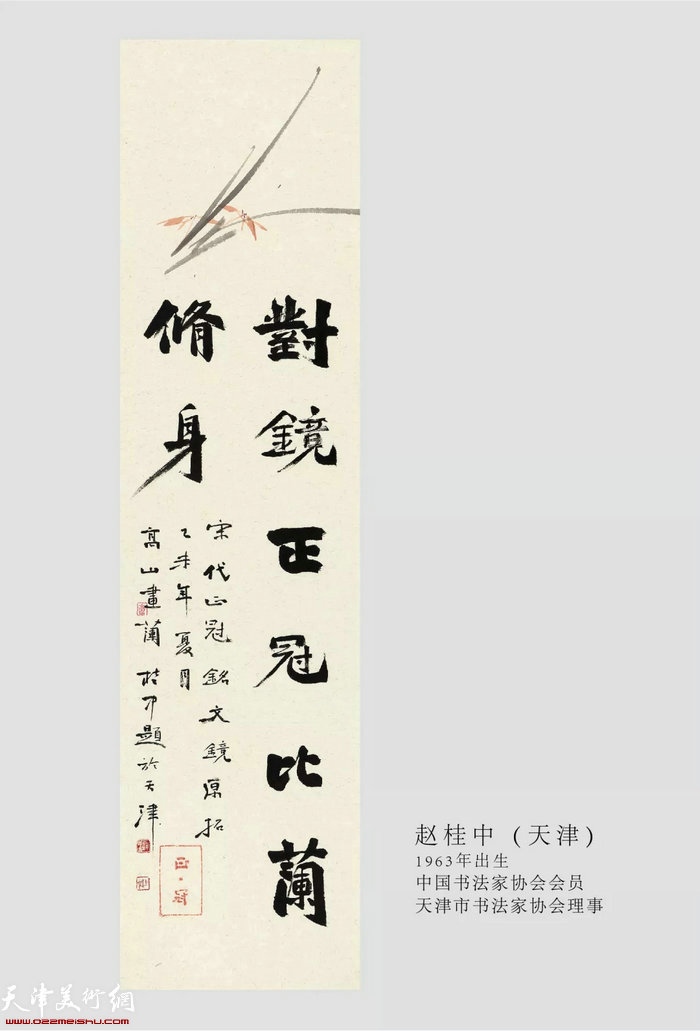 對鏡正冠比蘭
脩身
宋代正冠銘文鏡原拓
乙未年夏月
高山畫蘭 桂中題於天津
正·冠
赵桂中 (天津)
1963年出生
中国书法家协会会员
天津市书法家协会理事
天津美術網
www.ozzmeishu.com